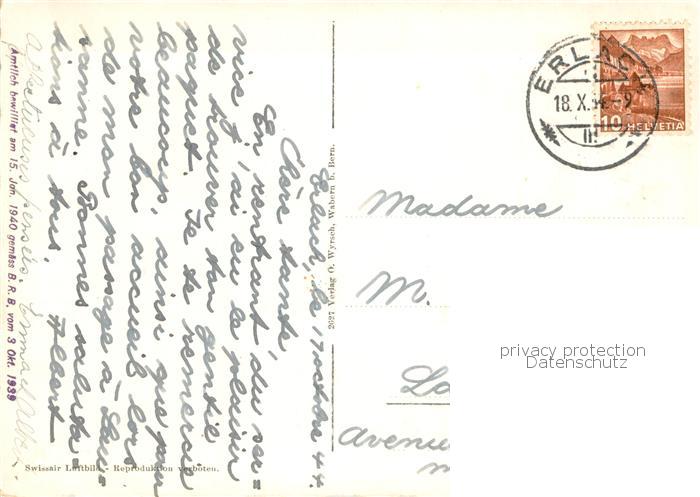 Erlach, le 17 octobre 44.
Chère tante,
En rentrant du ser=
vice j'ai eu le plaisir
de trouver ton gentil
paquet. Je te remercie
beaucoup, ainsi que pour
votre bon accueil lors
de mon passage à Lau-
sanne. Bonnes saluta=
tions à tous,
Albert
Affectueuses pensées.
Amtlich bewilligt am 15. Jan. 1940 gemäss B. R. B. vom 3. Okt. 1939
Swissair Luftbild - Reproduktion verboten.
2627 Verlag O. Wyrsch, Wabern b. Bern.
ERLACH
18. X. 44 - 9
10 HELVETIA
Madame
M.
Avenue
privacy protection
Datenschutz